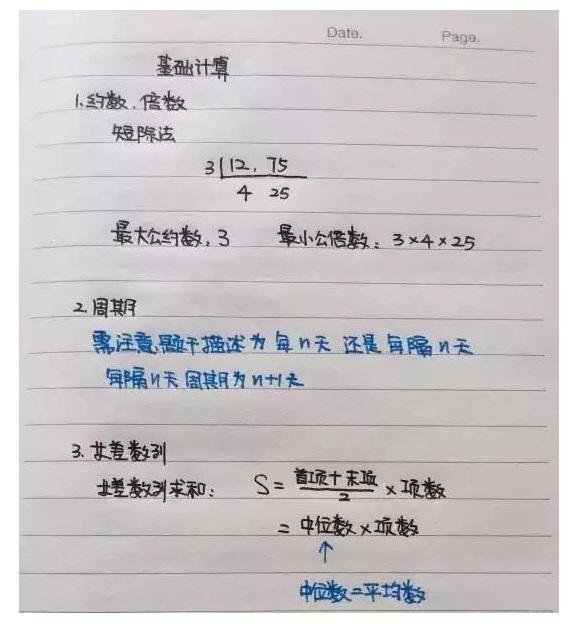 Date. Page.
基础计算
1.约数、倍数
短除法
3 12, 75
4 25
最大公约数, 3 最小公倍数: 3×4×25
2. 周期
需注意题干描述为每n天 还是每隔n天
每隔n天周期为n+1天
3. 等差数列
等差数列求和: S= 首项+末项/2 ×项数
= 中位数×项数
↑
中位数=平均数